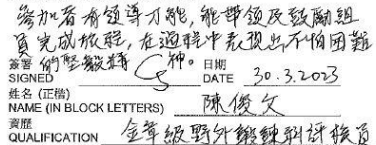 參加者有領導才能,能帶領及鼓勵組
員完成旅程,在過程中表現出不怕困難
的堅毅精神。
簽署 SIGNED 日期 DATE 30.3.2023
姓名 (正楷)
NAME (IN BLOCK LETTERS) 陳俊文
資歷
QUALIFICATION 金章級野外鍛鍊科評核員